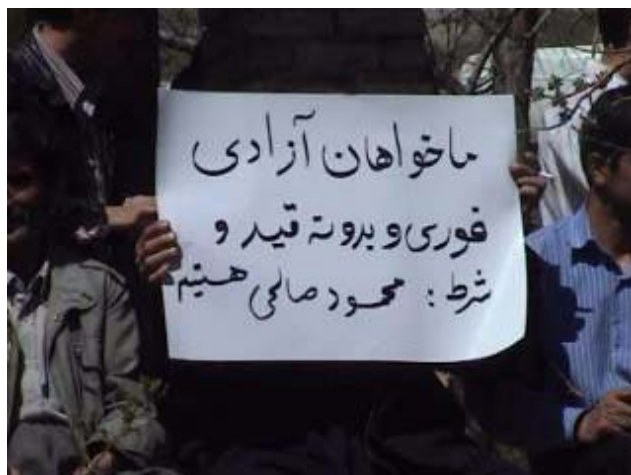 ما خواهان آزادی
فوری و بدون قید و
شرط : محمود صالحی هستیم